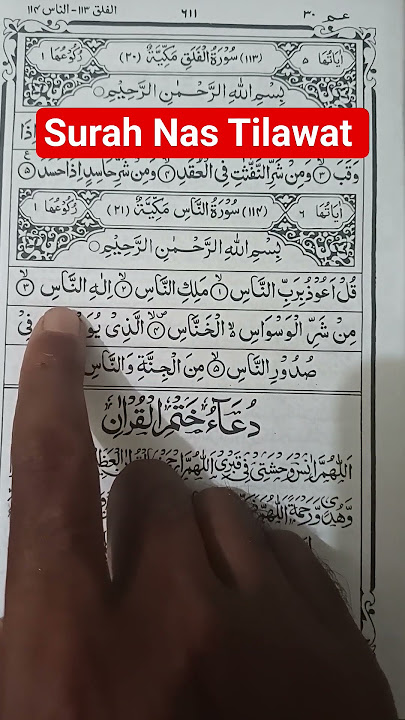 الفلق ١١٣- الناس ١١٤
٦١١
عـم ٣٠
اٰيَاتُهَا ٥
(١١٣) سُوْرَةُ الْفَلَقِ مَكِّيَّةٌ (٢٠)
رُكُوْعُهَا ١
بِسْمِ اللّٰهِ الرَّحْمٰنِ الرَّحِيْمِ
Surah Nas Tilawat
اِذَا
وَقَبَ ۙ۳ وَمِنْ شَرِّ النَّفّٰثٰتِ فِي الْعُقَدِ ۙ۴ وَمِنْ شَرِّ حَاسِدٍ اِذَا حَسَدَ ۵
اٰيَاتُهَا ٦
(١١٤) سُوْرَةُ النَّاسِ مَكِّيَّةٌ (٢١)
رُكُوْعُهَا ١
بِسْمِ اللّٰهِ الرَّحْمٰنِ الرَّحِيْمِ
قُلْ اَعُوْذُ بِرَبِّ النَّاسِ ۙ۱ مَلِكِ النَّاسِ ۙ۲ اِلٰهِ النَّاسِ ۙ۳
مِنْ شَرِّ الْوَسْوَاسِ ۙ الْخَنَّاسِ ۴ الَّذِيْ فِيْ
صُدُوْرِ النَّاسِ ۙ۵ مِنَ الْجِنَّةِ وَالنَّاسِ
دُعَآءُ خَتْمِ الْقُرْاٰنِ
اَللّٰهُمَّ اٰنِسْ وَحْشَتِيْ فِيْ قَبْرِيْ اَللّٰهُمَّ
وَّهُدًى وَّرَحْمَةً اَللّٰهُمَّ